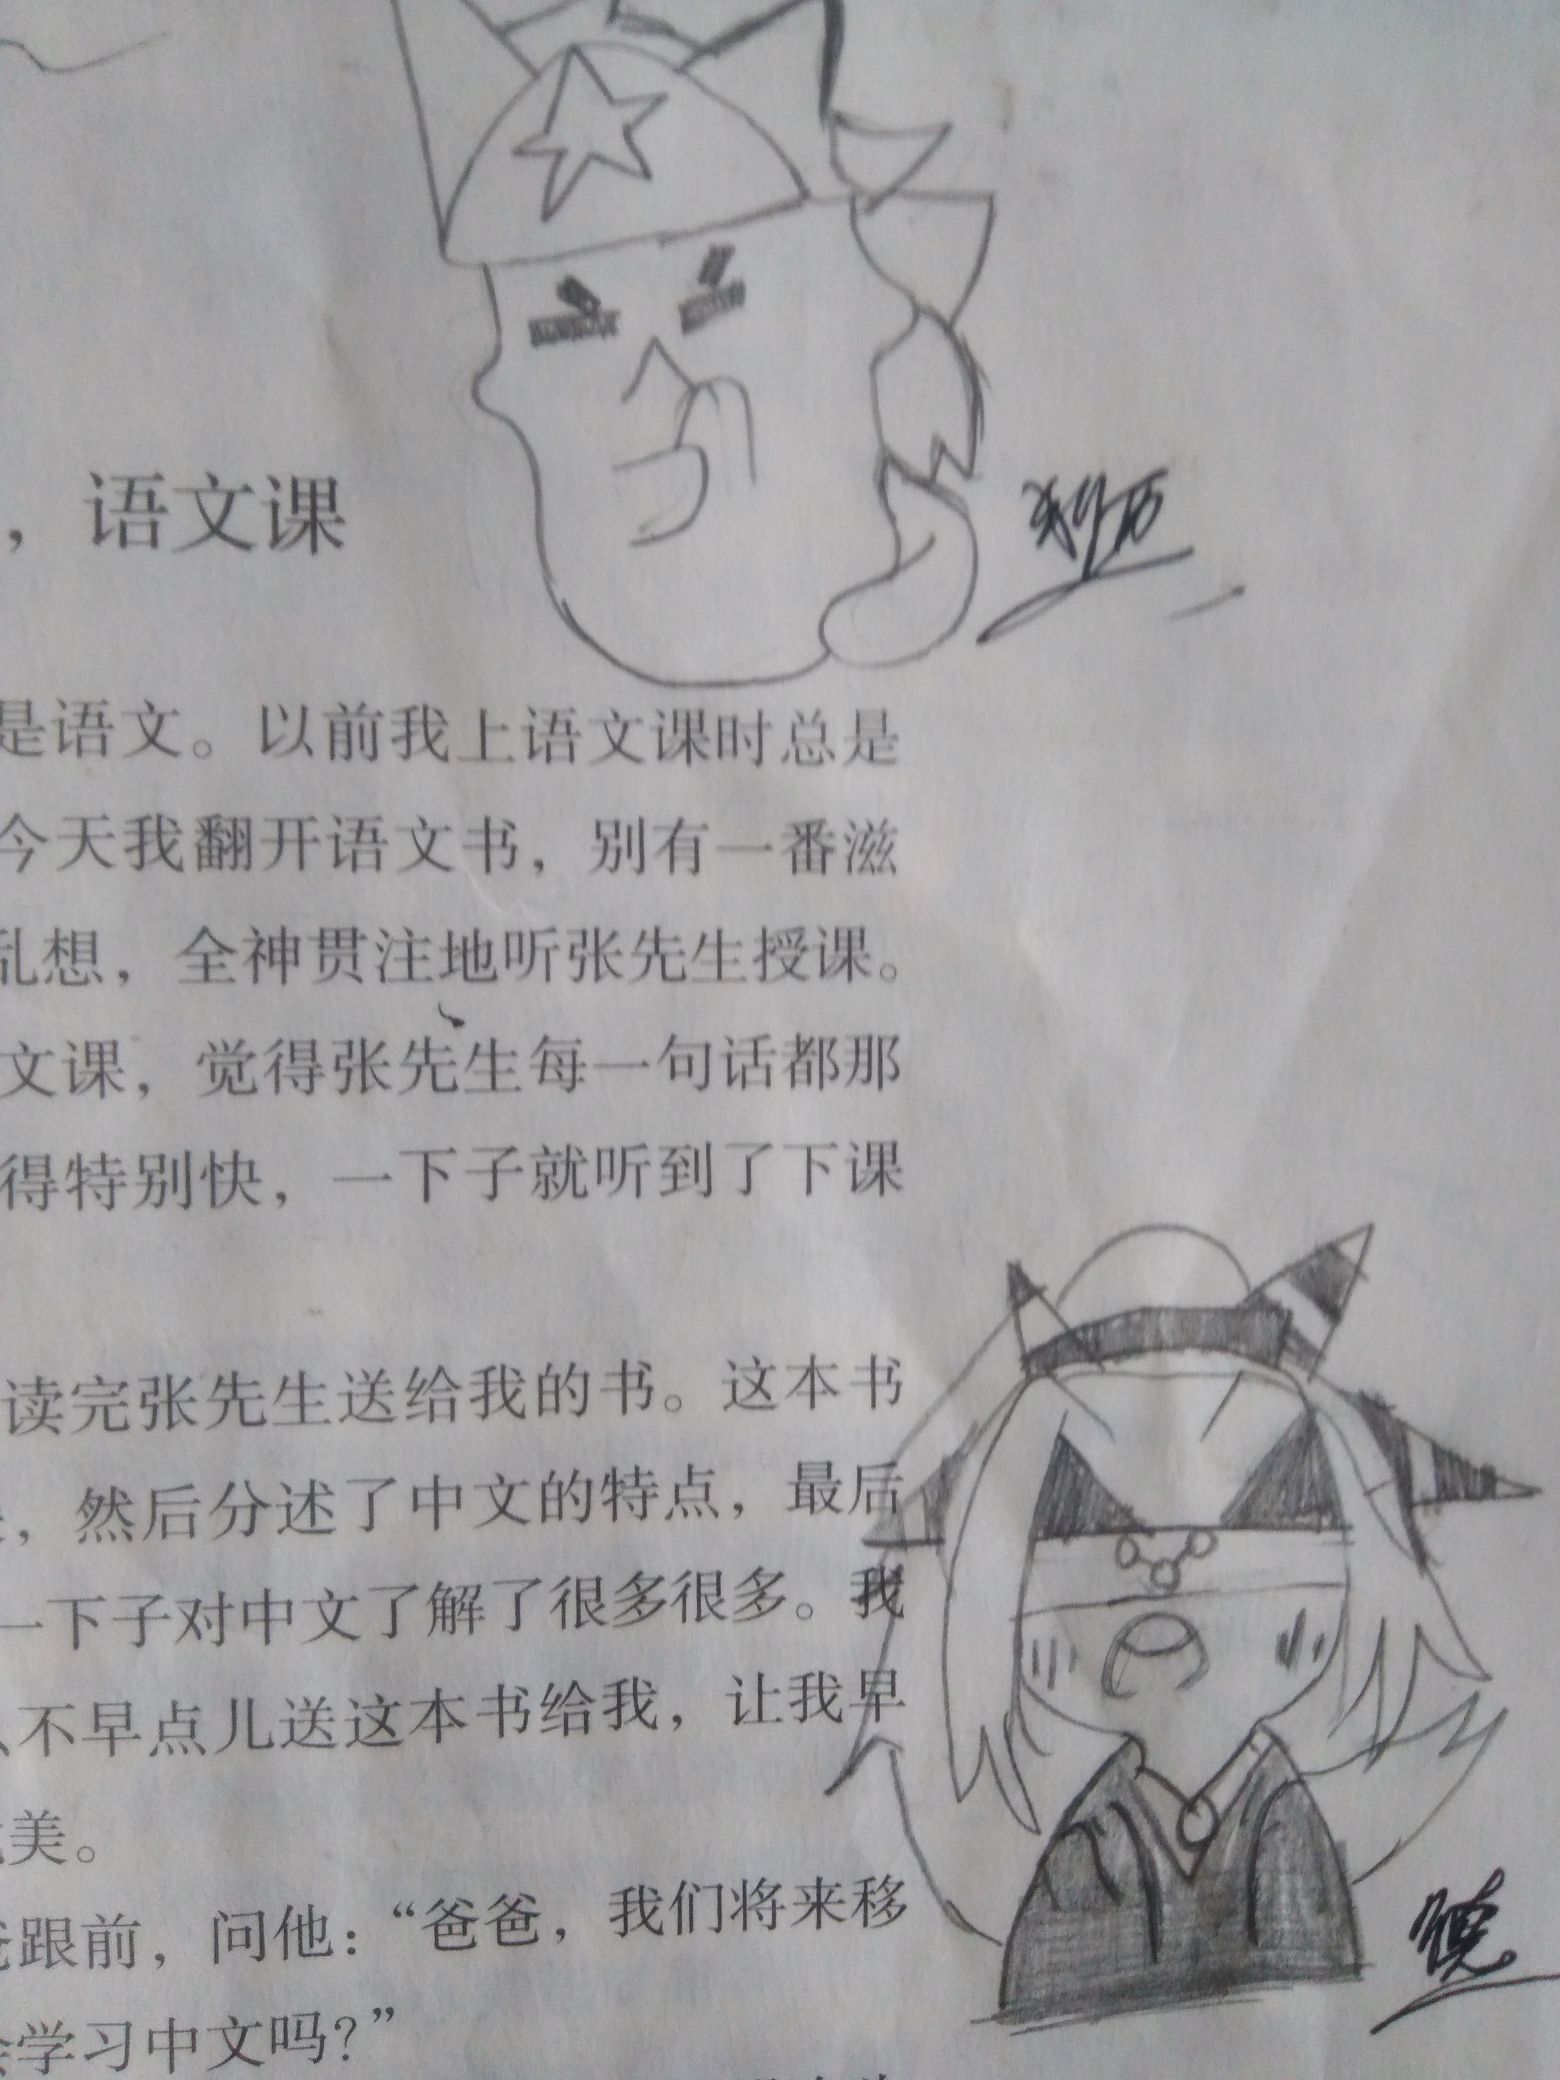 ，语文课
是语文。以前我上语文课时总是
今天我翻开语文书，别有一番滋
乱想，全神贯注地听张先生授课。
文课，觉得张先生每一句话都那
得特别快，一下子就听到了下课
读完张先生送给我的书。这本书
，然后分述了中文的特点，最后
一下子对中文了解了很多很多。我
不早点儿送这本书给我，让我早
美。
跟前，问他：“爸爸，我们将来移
学习中文吗？”